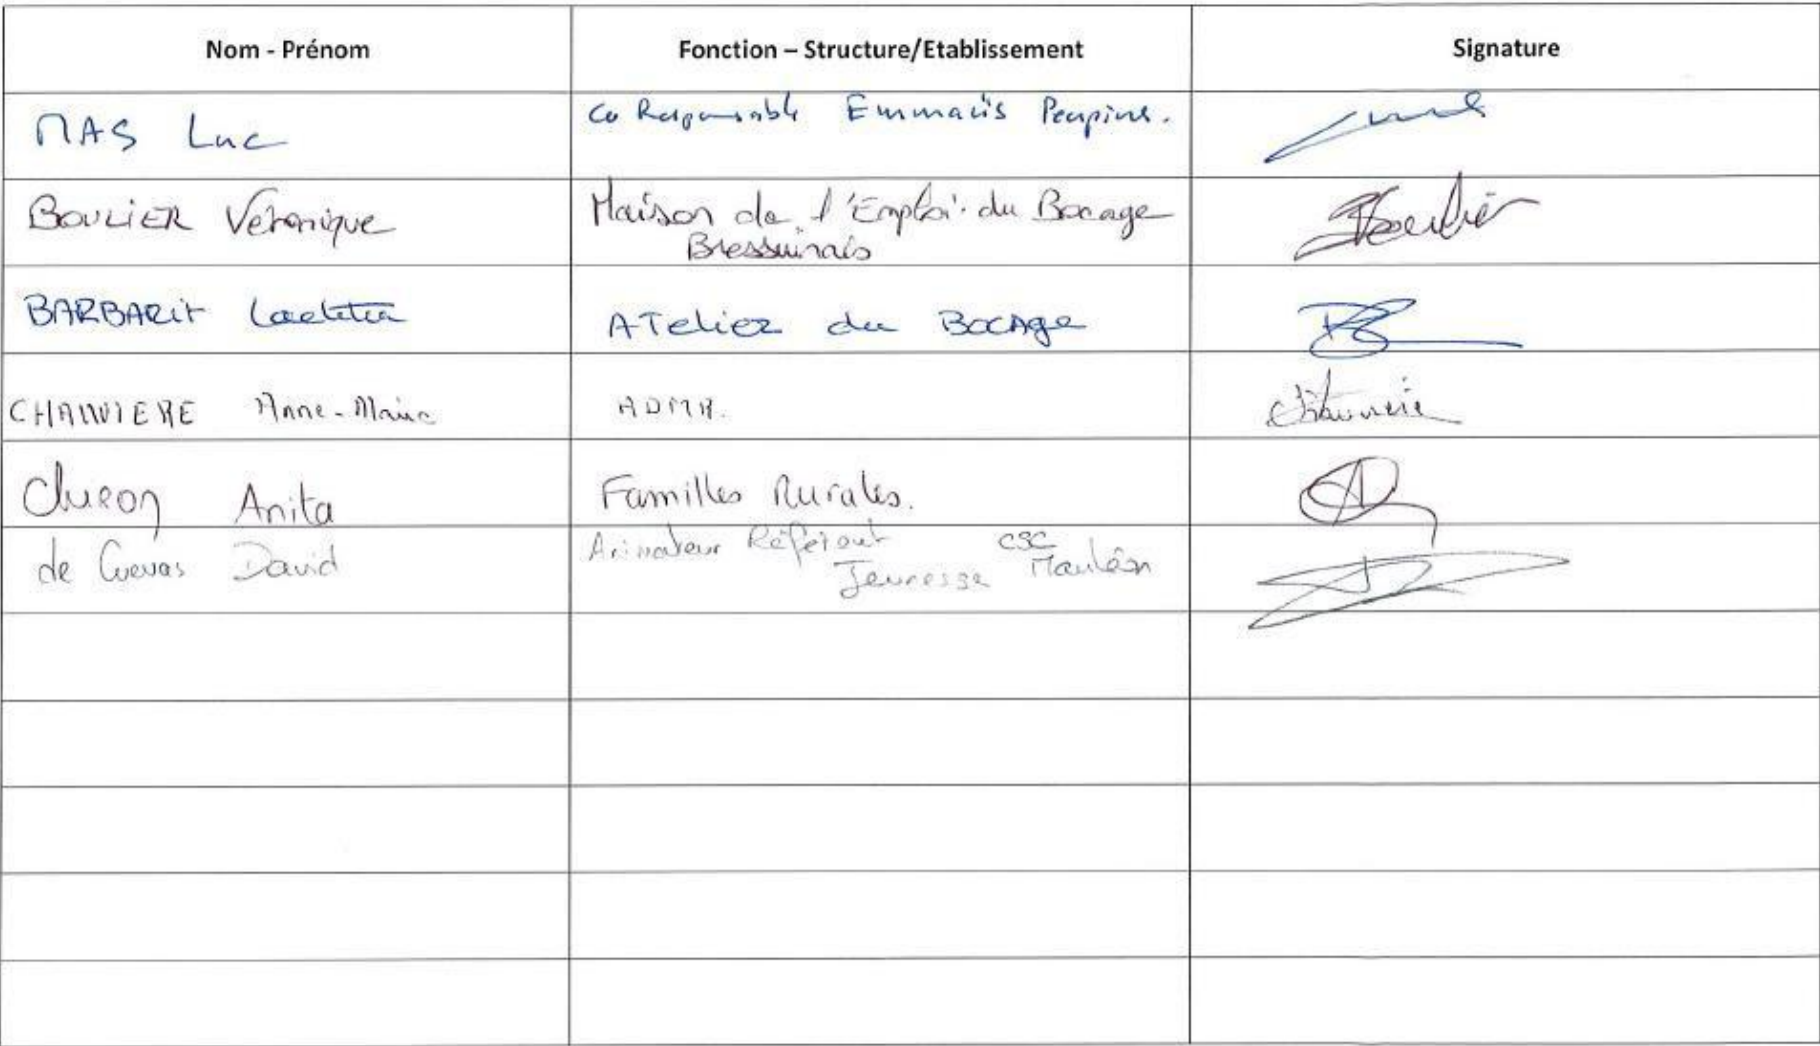 Nom - Prénom Fonction – Structure/Etablissement Signature
MAS Luc Co Responsable Emmaüs Peupins.
BOULIER Véronique Maison de l'Emploi du Bocage
Bressuirais
BARBARIT Laetitia ATelier du BOCAge
CHAUVIERE Anne-Marie ADMR.
Anita Familles Rurales.
de Cuevas David Animateur Référent CSC
Jeunesse Mauléon